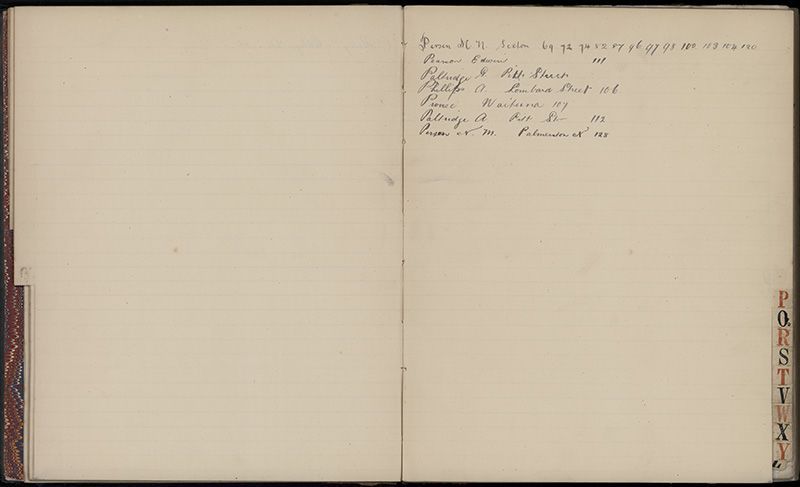 Person M N Sexton 69 72 74 82 87 96 97 98 100 103 104 120
Pearson Edwin 111
Paltridge G. Pitt Street
Phillips A. Lombard Street 106
Waiterua 107
Paltridge A Pitt St 112
Person N. M. Palmerston N 128
P
Q
R
S
T
V
W
X
Y